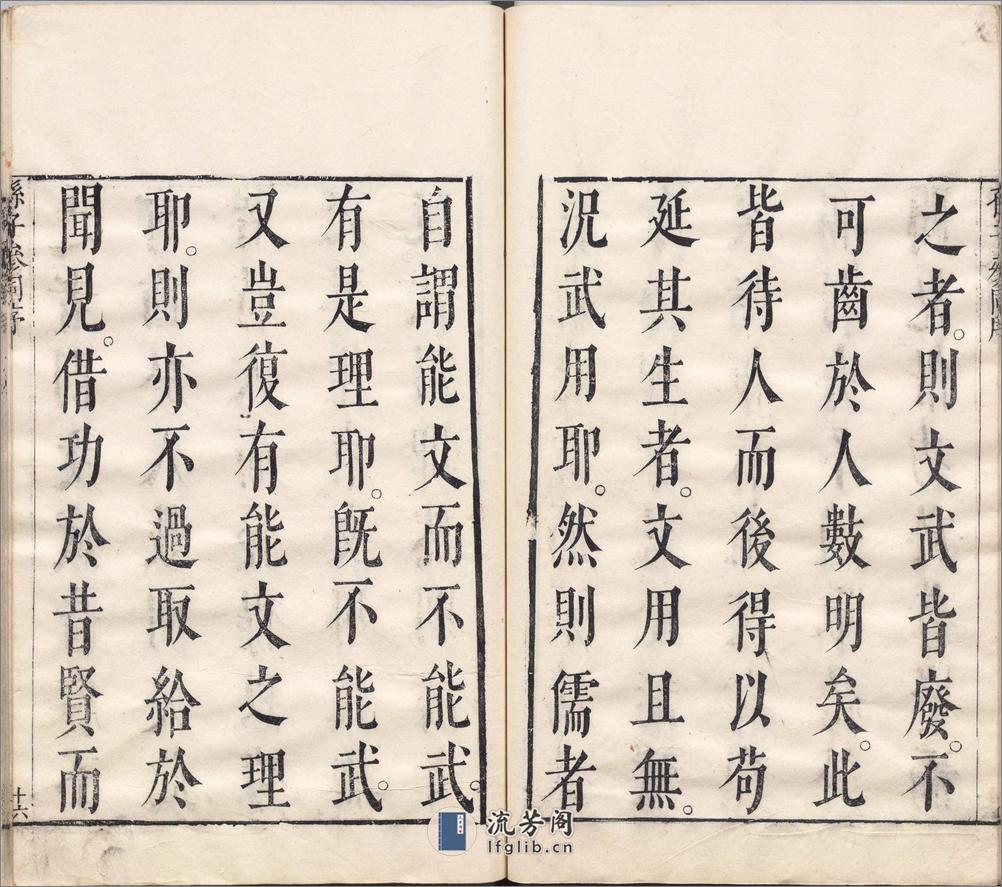 之者。則文武皆廢。不
可齒於人數明矣。此
皆待人而後得以苟
延其生者。文用且無。
況武用耶。然則儒者
自謂能文而不能武。
有是理耶。旣不能武。
又豈復有能文之理
耶。則亦不過取給於
聞見。借功於昔賢而
孫子參同序
十六
流芳阁
lfglib.cn